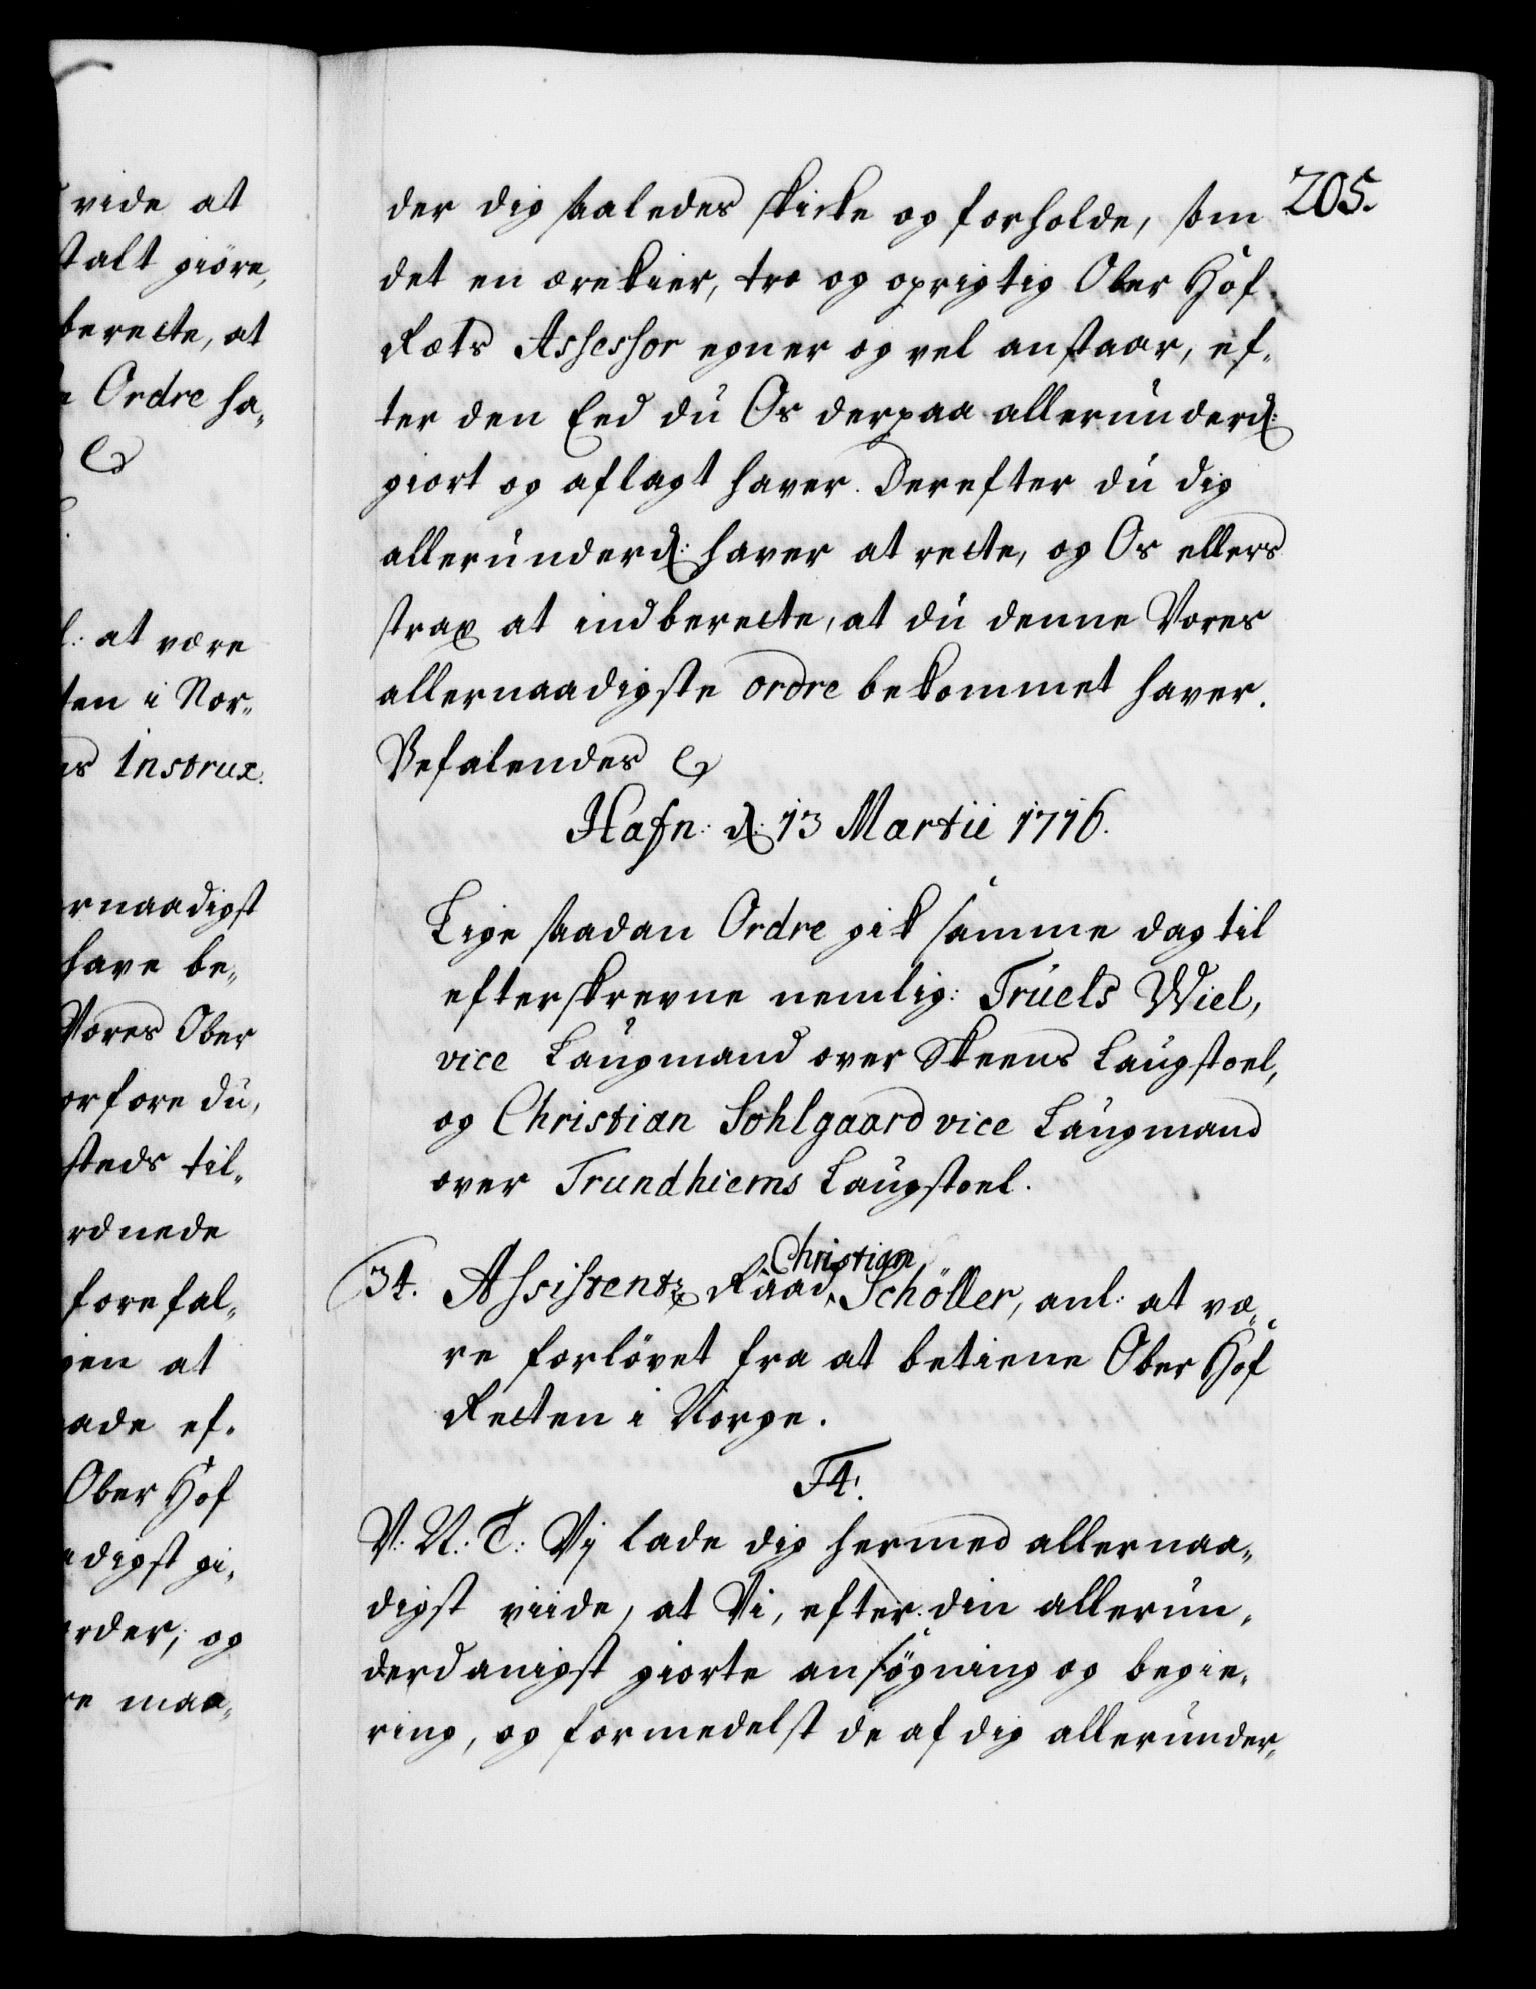 vide at
stalt giöre,
berette, at
Ordre ha„
at være
ten i Nor„
Instrux.
rnaadigst
have be„
Vores Ober
orfore du,
steds til„
rdnede
forefal„
gen at
ade ef„
Ober Hof
adigst gi„
rder, og
re maa„
205.
der dig saaledes skicke og forholde, som
det en ærekier, tro og oprigtig Ober Hof
Rets Assessor egner og vel anstaar, ef„
ter den Eed du Os derpaa allerunderd:
giort og aflagt haver. Derefter du dig
allerunderd: haver at rette, og Os ellers
strax at indberette, at du denne Vores
allernaadigste ordre bekommet haver.
Befalendes
Hafn: d: 13 Martii 1716.
Lige saadan Ordre gik samme dag til
efterskrevne nemlig: Truels Wiel,
vice Laugmand over Skeens Laugstoel,
og Christian Sohlgaard vice Laugmand
over Trundhiems Laugstoel.
34. Assistentz Raad Christian Schöller, anl: at væ„
re forlövet fra at betiene Ober Hof
Retten i Norge.
F4.
V: U: T: Vij lade dig hermed allernaa„
digst viide, at Vi, efter din allerun„
derdanigst giorte ansögning og begie„
ring, og formedelst de af dig allerunder„